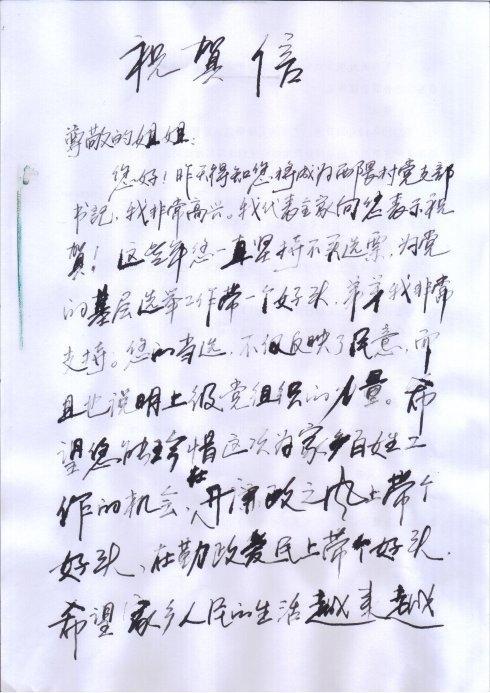 祝贺信
尊敬的姐姐：
您好！昨天得知您将成为西隈村党支部
书记，我非常高兴。我代表全家向您表示祝
贺！这些年您一直坚持不买选票，为党
的基层选举工作带一个好头，弟弟我非常
支持。您的当选，不仅反映了民意，而
且也说明上级党组织的力量。希
望您能珍惜这次为家乡百姓工
作的机会，在开廉政之风上带个
好头、在勤政爱民上带个好头.
希望家乡人民的生活越来越